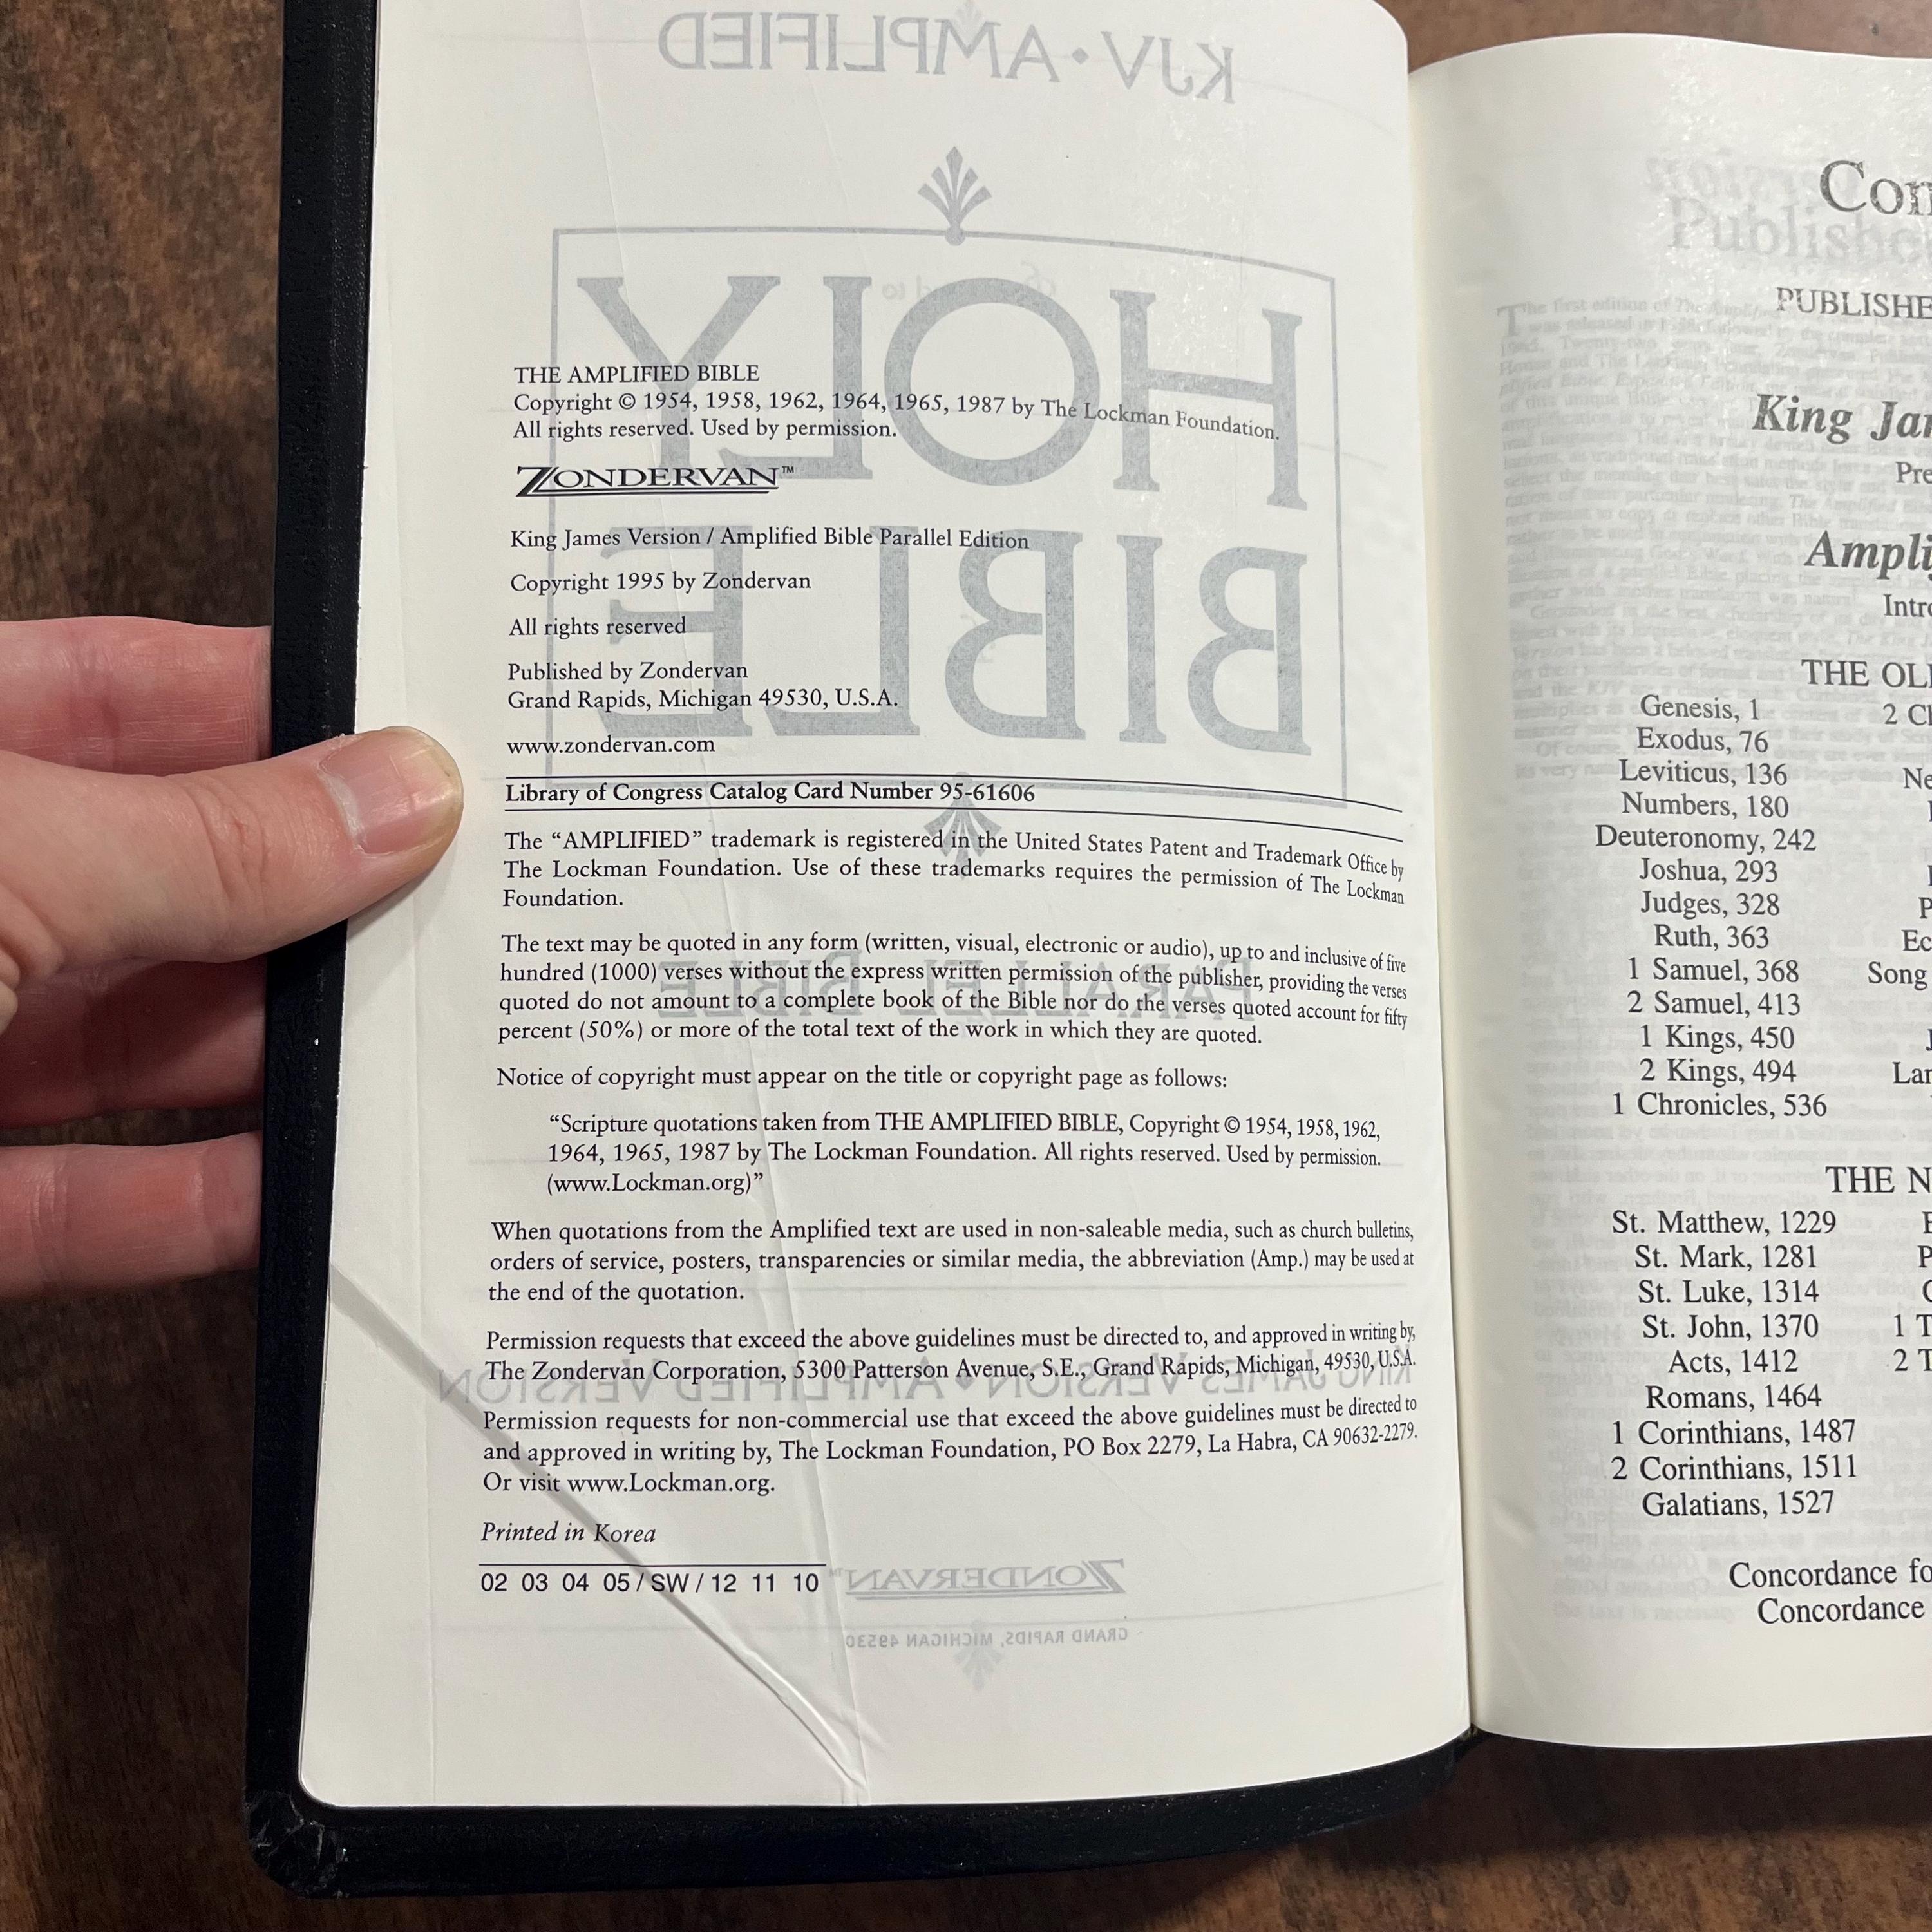 KJV • AMPLIFIED
HOLY
BIBLE
THE AMPLIFIED BIBLE
Copyright © 1954, 1958, 1962, 1964, 1965, 1987 by The Lockman Foundation.
All rights reserved. Used by permission.
ZONDERVAN™
King James Version / Amplified Bible Parallel Edition
Copyright 1995 by Zondervan
All rights reserved
Published by Zondervan
Grand Rapids, Michigan 49530, U.S.A.
www.zondervan.com
Library of Congress Catalog Card Number 95-61606
The “AMPLIFIED” trademark is registered in the United States Patent and Trademark Office by
The Lockman Foundation. Use of these trademarks requires the permission of The Lockman
Foundation.
The text may be quoted in any form (written, visual, electronic or audio), up to and inclusive of five
hundred (1000) verses without the express written permission of the publisher, providing the verses
quoted do not amount to a complete book of the Bible nor do the verses quoted account for fifty
percent (50%) or more of the total text of the work in which they are quoted.
PARALLEL BIBLE
Notice of copyright must appear on the title or copyright page as follows:
“Scripture quotations taken from THE AMPLIFIED BIBLE, Copyright © 1954, 1958, 1962,
1964, 1965, 1987 by The Lockman Foundation. All rights reserved. Used by permission.
(www.Lockman.org)”
When quotations from the Amplified text are used in non-saleable media, such as church bulletins,
orders of service, posters, transparencies or similar media, the abbreviation (Amp.) may be used at
the end of the quotation.
Permission requests that exceed the above guidelines must be directed to, and approved in writing by,
The Zondervan Corporation, 5300 Patterson Avenue, S.E., Grand Rapids, Michigan, 49530, U.S.A.
KING JAMES VERSION • AMPLIFIED VERSION
Permission requests for non-commercial use that exceed the above guidelines must be directed to
and approved in writing by, The Lockman Foundation, PO Box 2279, La Habra, CA 90632-2279.
Or visit www.Lockman.org.
Printed in Korea
02 03 04 05 / SW / 12 11 10
ZONDERVAN™
GRAND RAPIDS, MICHIGAN 49530
Con
PUBLISHE
King Jam
Pre
Ampli
Intro
THE OL
Genesis, 1
2 Ch
Exodus, 76
Leviticus, 136
Ne
Numbers, 180
Deuteronomy, 242
Joshua, 293
Judges, 328
P
Ruth, 363
Ec
1 Samuel, 368
Song
2 Samuel, 413
1 Kings, 450
J
2 Kings, 494
Lam
1 Chronicles, 536
THE N
St. Matthew, 1229
E
St. Mark, 1281
P
St. Luke, 1314
C
St. John, 1370
1 T
Acts, 1412
2 T
Romans, 1464
1 Corinthians, 1487
2 Corinthians, 1511
Galatians, 1527
Concordance fo
Concordance